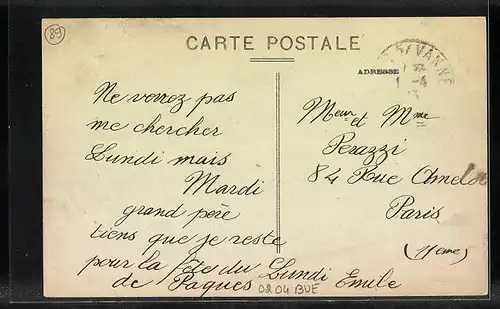 89
CARTE POSTALE
S/VANNE
ADRESSE
Ne verrez pas
me chercher
Lundi mais
Mardi
grand père
tiens que je reste
pour la fête du Lundi
de Paques
Emile
Meur et Mme
Perazzi
84 Rue Amelot
Paris
(11eme)
0204 BUE